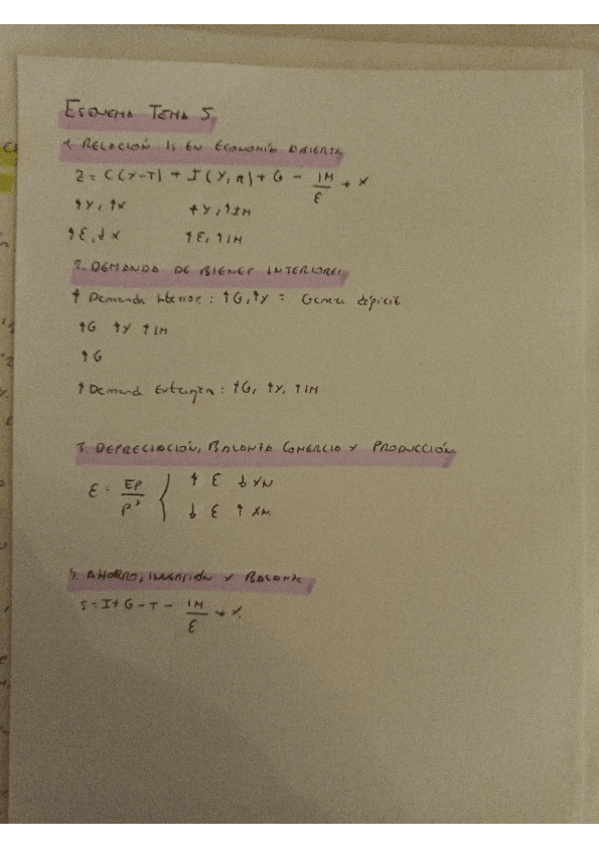 ESQUEMA TEMA 5
1. RELACIÓN IS EN ECONOMÍA ABIERTA
Z = C(Y-T) + I(Y, r) + G - IM/ε + X
↑Y, ↑X ↑Y, ↑IM
↑ε, ↓X ↑ε, ↑IM
2. DEMANDA DE BIENES INTERIORES
↑ Demanda Interior: ↑G, ↑Y = Genera déficit
↑G ↑Y ↑IM
↑G
↑ Demand Extranjera: ↑G, ↑Y, ↑IM
3. DEPRECIACIÓN, BALANZA COMERCIO Y PRODUCCIÓN
ε = EP/P* { ↑ ε ↓ XN
↓ ε ↑ XN
AHORRO, INVERSIÓN Y BALANZA
S = I + G - T - IM/ε + X